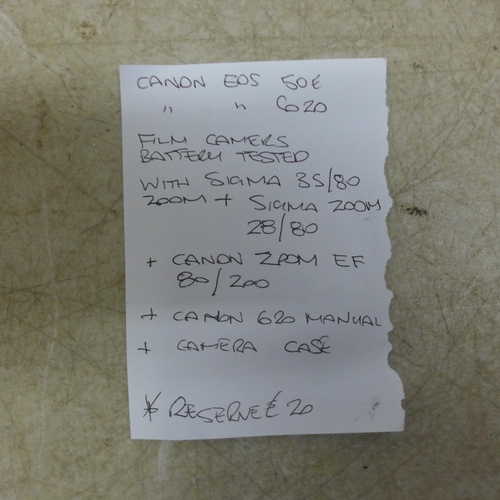 CANON EOS 50E
" " 620
FILM CAMERS
BATTERY TESTED
WITH SIGMA 35/80
ZOOM + SIGMA ZOOM
28/80
+ CANON ZOOM EF
80/200
+ CANON 620 MANUAL
+ CAMERA CASE
* RESERVE £ 20